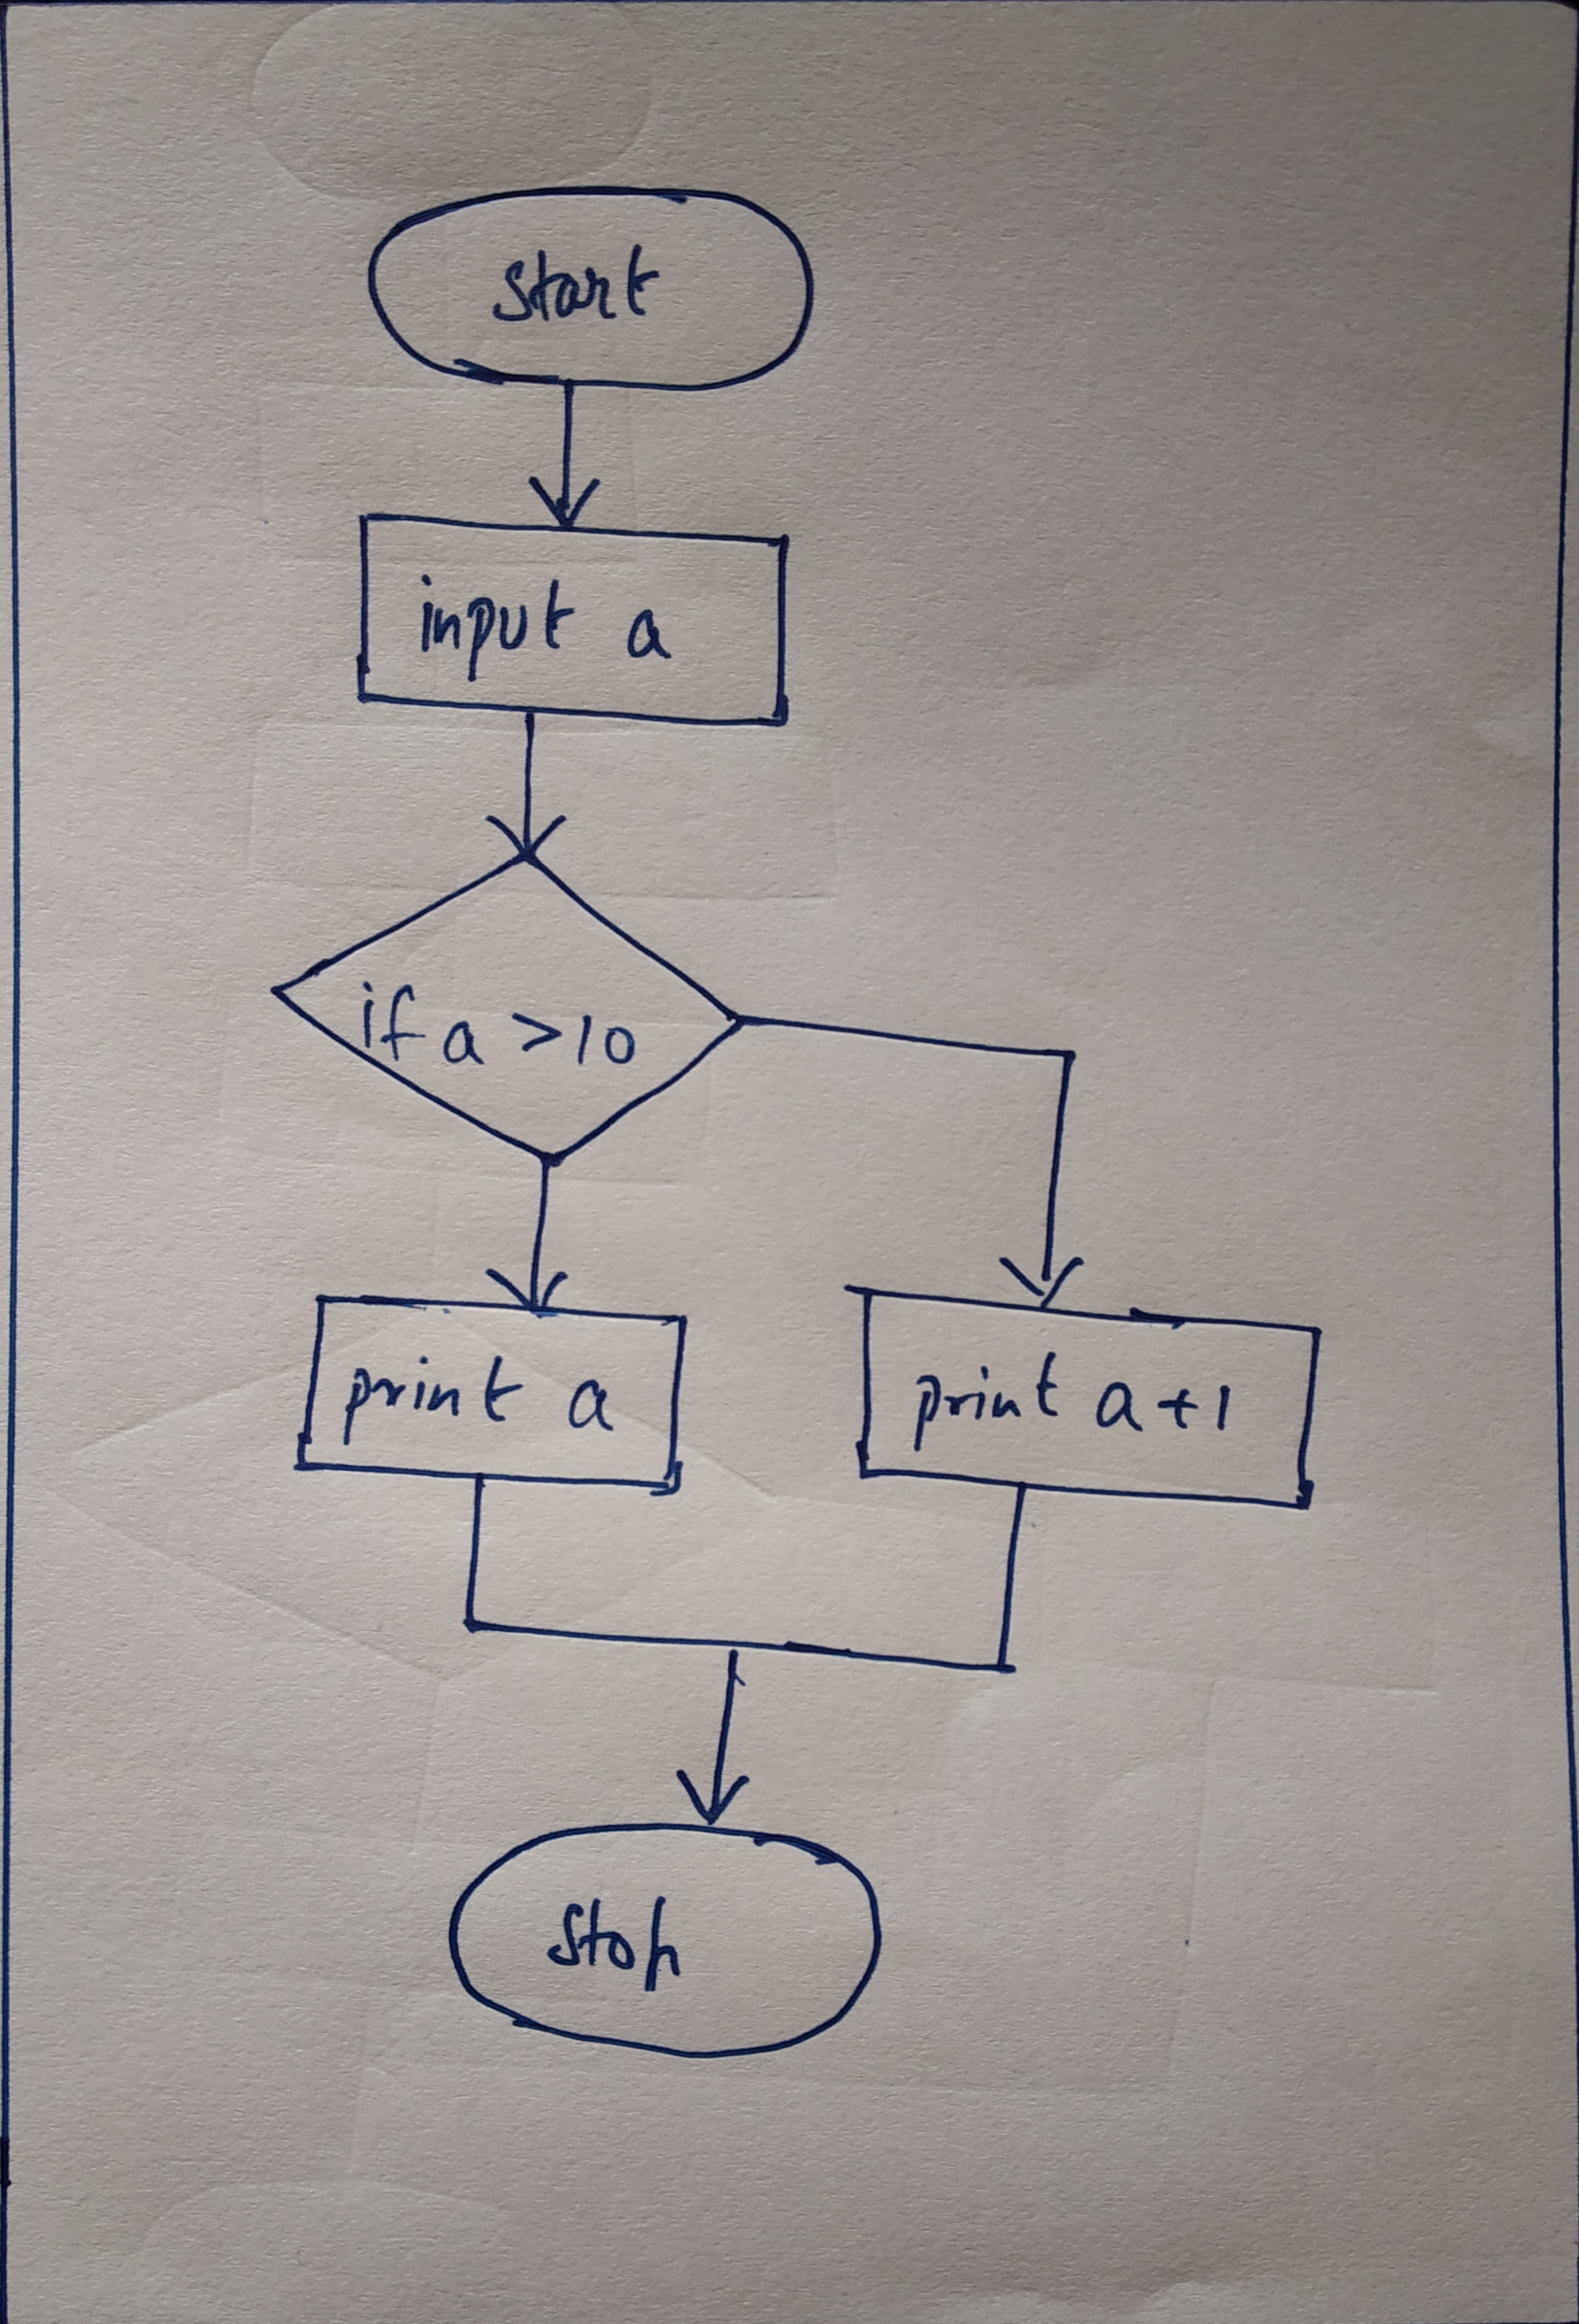 start
input a
if a >10
print a
print a+1
stop